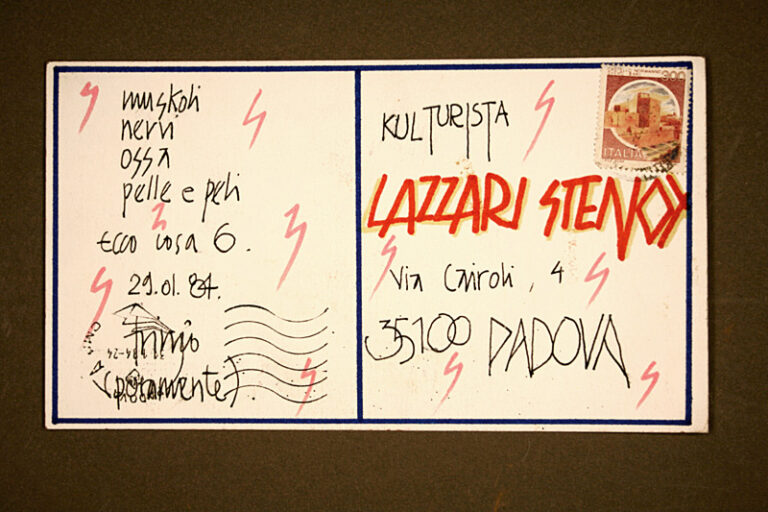 muskoli
nervi
ossa
pelle e peli
Ecco cosa 6.
29.01.84.
(poramente).
KULTURISTA
LAZZARI STENOY
Via Cairoli, 4
35100 PADOVA
200
ITALIA